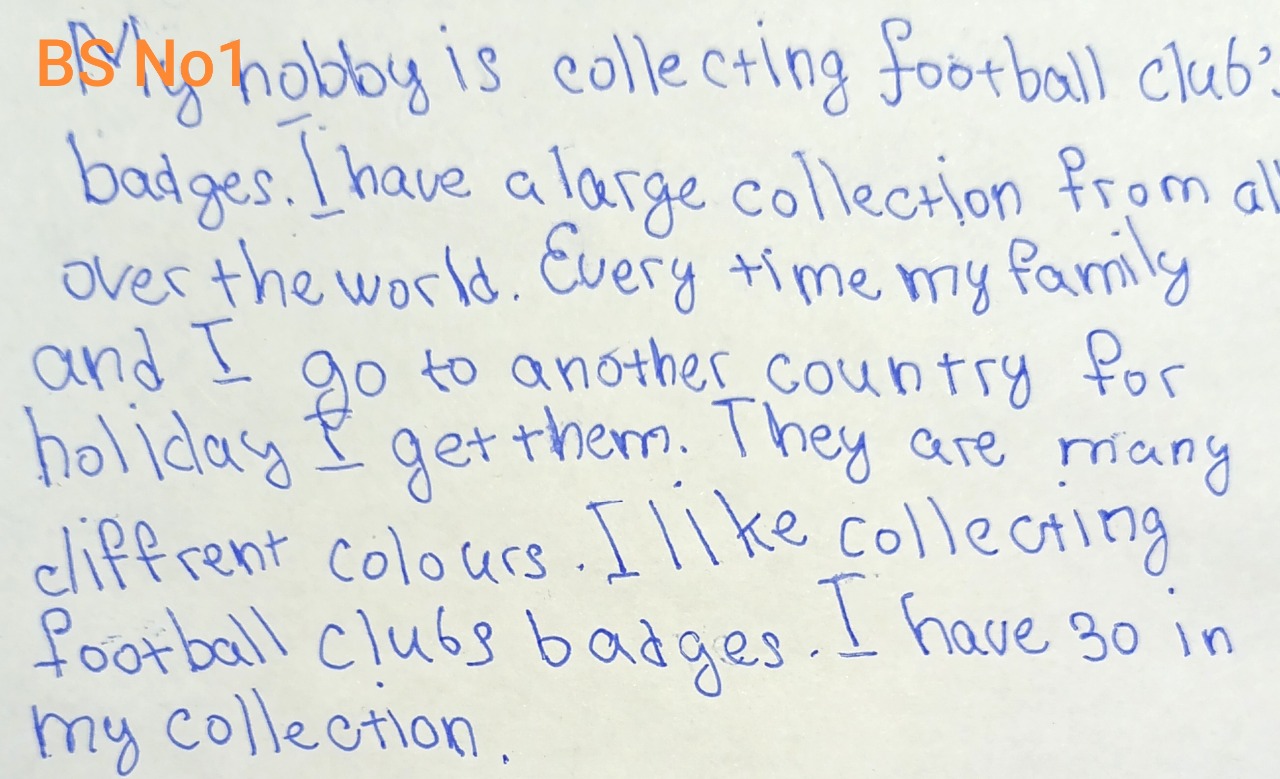 BS No1
My hobby is collecting football club's
badges. I have a large collection from all
over the world. Every time my family
and I go to another country for
holiday I get them. They are many
diffrent colours. I like collecting
football clubs badges. I have 30 in
my collection.